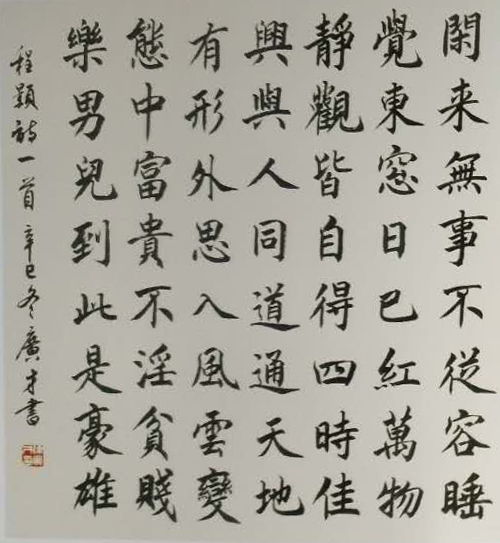 閑来無事不從容睡
覺東窓日已紅萬物
靜觀皆自得四時佳
興與人同道通天地
有形外思入風雲變
態中富貴不淫貧賤
樂男兒到此是豪雄
程顥詩一首辛巳冬廣才書